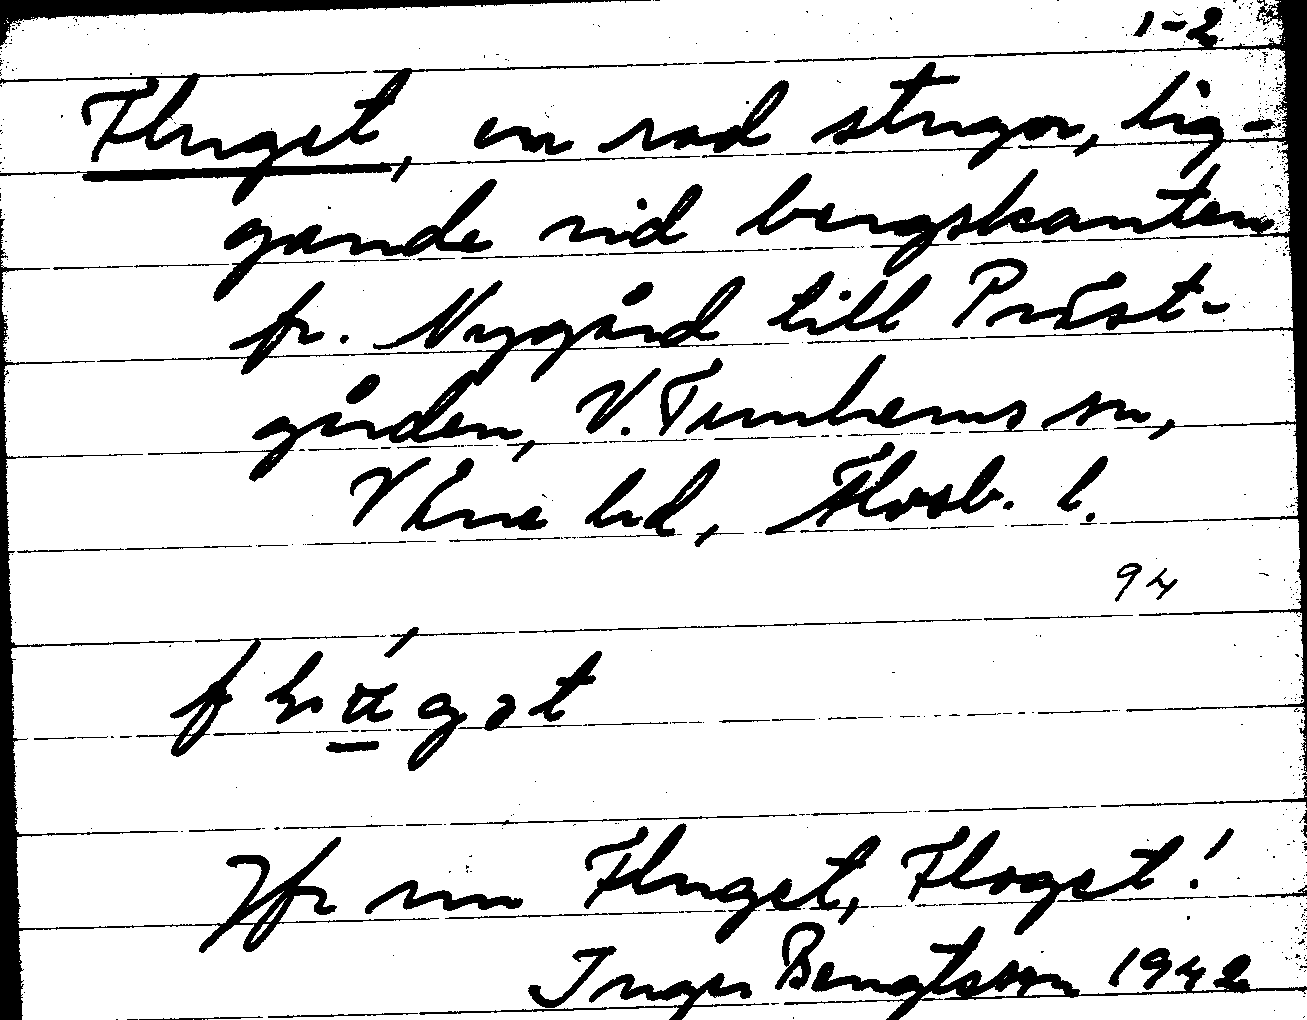 1-2
Fluget, en rad stugor, lig-
gande vid bergskanten
fr. Nygård till Präst-
gården, V. Tunhems sn,
Väne hd, Älvsb. l.
94
Jfr sn Fluget, Floget!
Inger Bengtsson 1942